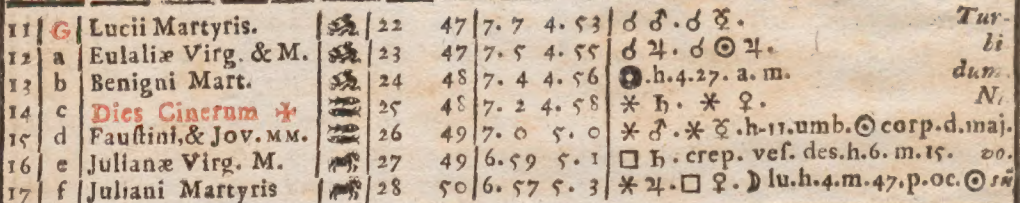 11 G Lucii Martyris. 22 47 7. 7 4. 53 ☌ ♂. ☌ ☿. Tur-
12 a Eulaliæ Virg. & M. 23 47 7. 5 4. 55 ☌ ♃. ☌ ☉ ♃. bi
13 b Benigni Mart. 24 48 7. 4 4. 56 .h.4.27. a. m. dum.
14 c Dies Cinerum ✠ 25 48 7. 2 4. 58 ⚹ ♄. ⚹ ♀. N
15 d Fauſtini,& Jov. MM. 26 49 7. 0 5. 0 ⚹ ♂. ⚹ ☿. h-11.umb. ☉ corp.d.maj.
16 e Julianæ Virg. M. 27 49 6. 59 5. 1 □ ♄. crep. veſ. des.h.6. m.15. vo.
17 f Juliani Martyris 28 50 6. 57 5. 3 ⚹ ♃. □ ♀. ☽ lu.h.4.m.47.p.oc. ☉